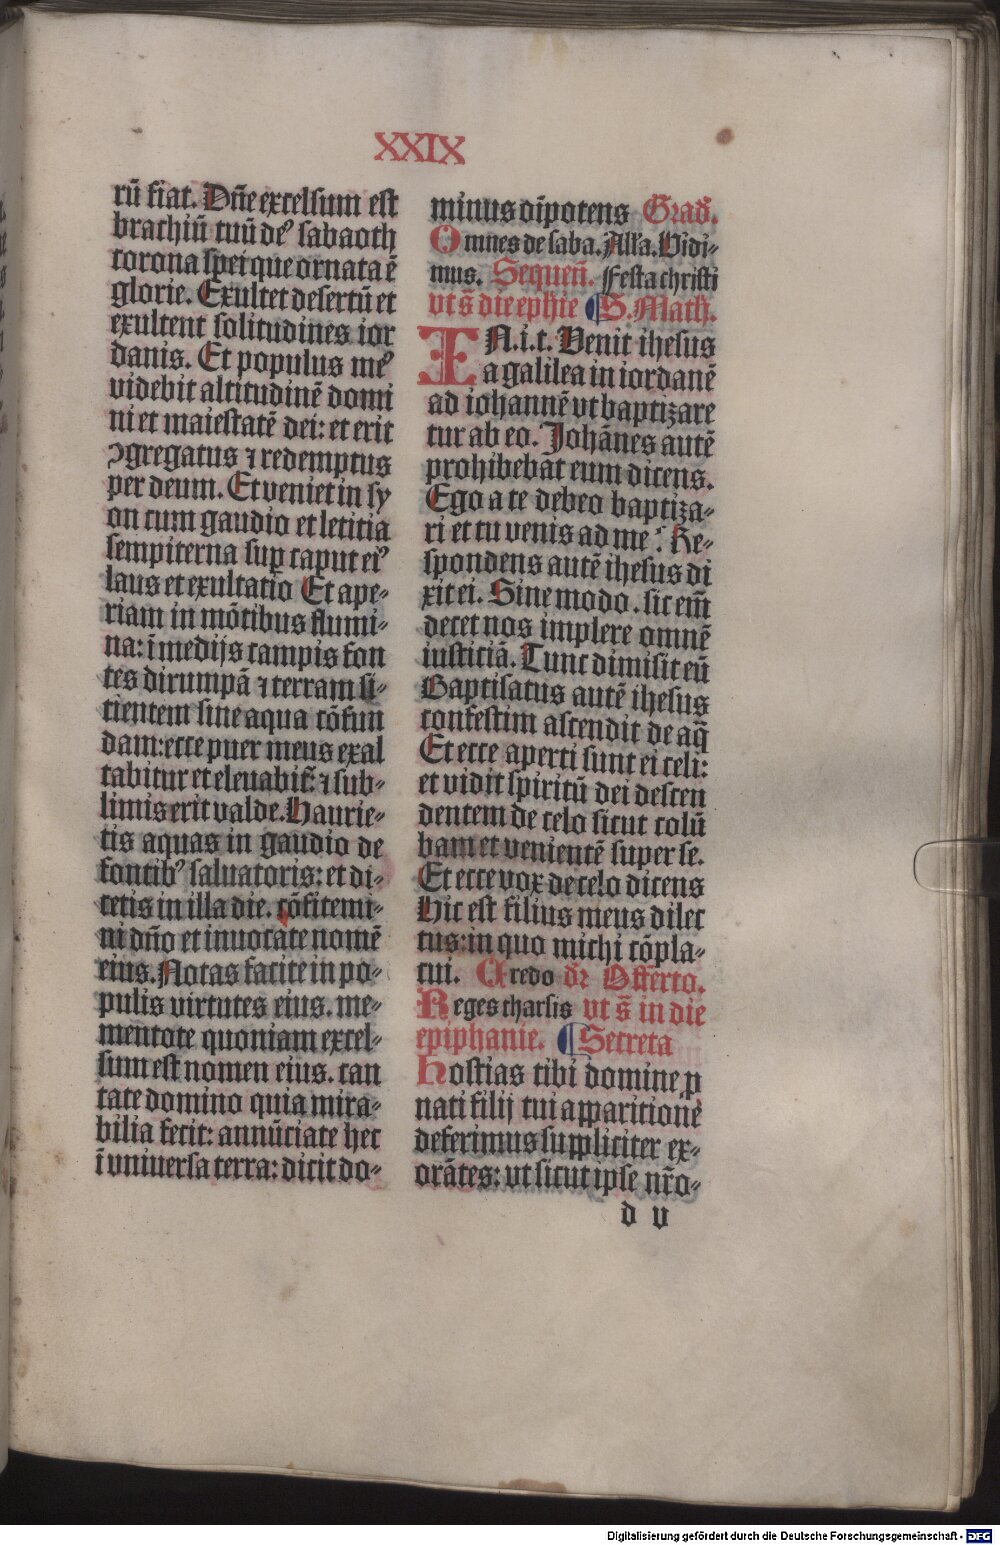 XXIX
rū fiat. Dñe excelsum est
brachiū tuū deꝰ sabaoth
corona spei que ornata ē
glorie. Exultet desertū et
exultent solitudines ior
danis. Et populus meꝰ
videbit altitudinē domi
ni et maiestatē dei: et erit
ꝯgregatus ⁊ redemptus
per deum. Et veniet in sy
on cum gaudio et leticia
sempiterna suꝑ caput eiꝰ
laus et exultatio Et ape-
riam in mōtibus flumi-
na: ī medijs campis fon
tes dirumpā ⁊ terram si-
cientem sine aqua cōfun
dam: ecce puer meus exal
tabitur et eleuabiť: ⁊ sub-
limis erit valde. Haurie-
tis aquas in gaudio de
fontibꝰ saluatoris: et di-
cetis in illa die. cōfitemi-
ni dño et inuocate nomē
eius. Notas facite in po-
pulis virtutes eius. me-
mentote quoniam excel-
sum est nomen eius. can
tate domino quia mira-
bilia fecit: annūciate hec
ī vniuersa terra: dicit do-
minus oīpotens Grad̄.
Omnes de saba. All'a. Vidi-
mus. Sequeñ. Festa christi
vt s̄ die ephie ¶ S. Math.
IN.i.t. Venit ihesus
a galilea in iordanē
ad iohannē vt baptizare
tur ab eo. Johānes autē
prohibebat eum dicens.
Ego a te debeo baptiza-
ri et tu venis ad me: Re-
spondens autē ihesus di
xit ei. Sine modo. sic em̄
decet nos implere omnē
iusticiā. Tunc dimisit eū
Baptisatus autē ihesus
confestim ascendit de aq̄
Et ecce aperti sunt ei celi:
et vidit spiritū dei descen
dentem de celo sicut colū
bam et venientē super se.
Et ecce vox de celo dicens
Hic est filius meus dilec
tus: in quo michi cōpla-
cui. Credo dr̄ Offerto.
Reges tharsis vt s̄ in die
epiphanie. ¶ Secreta
Hostias tibi domine ꝓ
nati filij tui apparitione
deferimus suppliciter ex-
orātes: vt sicut ipse nr̄o-
d v
Digitalisierung gefördert durch die Deutsche Forschungsgemeinschaft - DFG